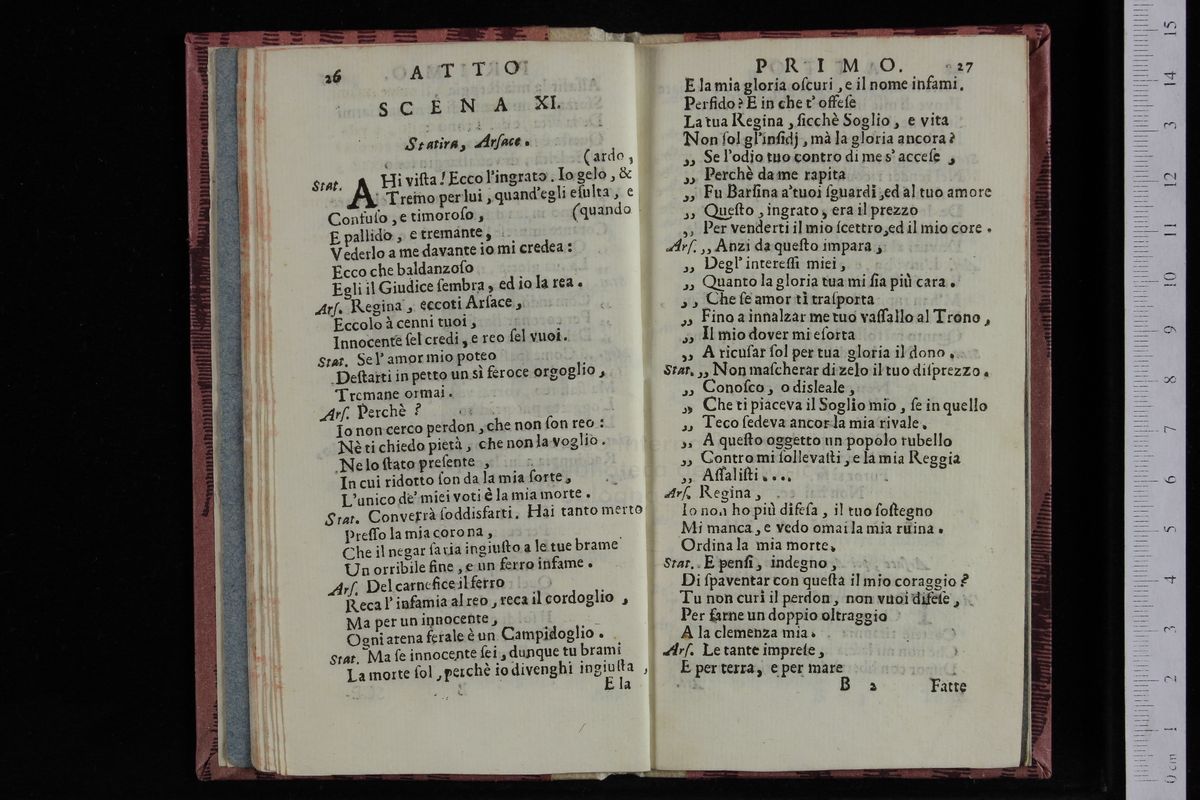 26 ATTO
SCENA XI.
Statira, Arſace.
(ardo,
Stat. AHi viſta! Ecco l'ingrato. Io gelo, &
Tremo per lui, quand'egli eſulta, e
Confuſo, e timoroſo, (quando
E pallido, e tremante,
Vederlo a me davante io mi credea:
Ecco che baldanzoſo
Egli il Giudice ſembra, ed io la rea.
Arſ. Regina, eccoti Arſace,
Eccolo à cenni tuoi,
Innocente ſel credi, e reo ſel vuoi.
Stat. Se l'amor mio poteo
Deſtarti in petto un sì feroce orgoglio,
Tremane ormai.
Arſ. Perchè?
Io non cerco perdon, che non ſon reo:
Nè ti chiedo pietà, che non la voglio.
Ne lo ſtato preſente,
In cui ridotto ſon da la mia ſorte,
L'unico de' miei voti è la mia morte.
Stat. Converrà ſoddisfarti. Hai tanto merto
Preſſo la mia corona,
Che il negar ſaria ingiuſto a le tue brame
Un orribile fine, e un ferro infame.
Arſ. Del carnefice il ferro
Reca l'infamia al reo, reca il cordoglio,
Ma per un innocente,
Ogni arena ferale è un Campidoglio.
Stat. Ma ſe innocente ſei, dunque tu brami
La morte ſol, perchè io divenghi ingiuſta,
E la
PRIMO. 27
E la mia gloria oſcuri, e il nome infami.
Perfido? E in che t'offeſe
La tua Regina, ſicchè Soglio, e vita
Non ſol gl'inſidj, mà la gloria ancora?
„ Se l'odio tuo contro di me s'acceſe,
„ Perchè da me rapita
„ Fu Barſina a'tuoi ſguardi, ed al tuo amore
„ Queſto, ingrato, era il prezzo
„ Per venderti il mio ſcettro, ed il mio core.
Arſ. „ Anzi da queſto impara,
„ Degl'intereſſi miei,
„ Quanto la gloria tua mi ſia più cara.
„ Che ſe amor ti traſporta
„ Fino a innalzar me tuo vaſſallo al Trono,
„ Il mio dover mi eſorta
„ A ricuſar ſol per tua gloria il dono.
Stat. „ Non maſcherar di zelo il tuo diſprezzo.
„ Conoſco, o disleale,
„ Che ti piaceva il Soglio mio, ſe in quello
„ Teco ſedeva ancor la mia rivale.
„ A queſto oggetto un popolo rubello
„ Contro mi ſollevaſti, e la mia Reggia
„ Aſſaliſti....
Arſ. Regina,
Io non ho più difeſa, il tuo ſoſtegno
Mi manca, e vedo omai la mia ruina.
Ordina la mia morte.
Stat. E penſi, indegno,
Di ſpaventar con queſta il mio coraggio?
Tu non curi il perdon, non vuoi difeſe,
Per farne un doppio oltraggio
A la clemenza mia.
Arſ. Le tante impreſe,
E per terra, e per mare
B 2 Fatte
15
14
13
12
11
10
9
8
7
6
5
4
3
2
1
0 cm